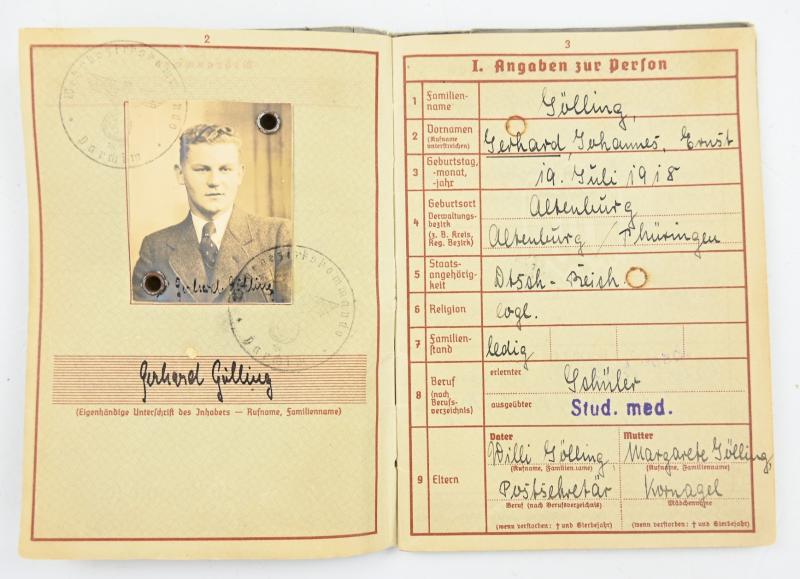 2
Wehrbezirkskommando
Gerhard Gölling
Wehrbezirkskommando
Gerhard Gölling
(Eigenhändige Unterschrift des Inhabers — Rufname, Familienname)
3
I. Angaben zur Person
1 Familien-
name
Gölling,
2 Vornamen
(Rufname
unterstreichen)
Gerhard, Johannes, Ernst
3 Geburtstag,
-monat,
-jahr
19. Juli 1918
4 Geburtsort
Verwaltungs-
bezirk
(z. B. Kreis,
Reg. Bezirk)
Altenburg
Altenburg / Thüringen
5 Staats-
angehörig-
keit
Dtsch-Reich.
6 Religion
evgl.
7 Familien-
stand
ledig
8 Beruf
(nach
Berufs-
verzeichnis)
erlernter
Schüler
ausgeübter
Stud. med.
9 Eltern
Vater
Willi Gölling,
(Rufname, Familienname)
Postsekretär
Beruf (nach Berufsverzeichnis)
(wenn verstorben: † und Sterbejahr)
Mutter
Margarete Gölling,
(Rufname, Familienname)
Kornagel
Mädchenname
(wenn verstorben: † und Sterbejahr)